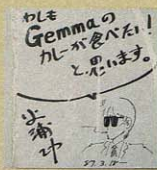 わしも
Gemmaの
カレーが食べたい!
と、思います。
27.3.18